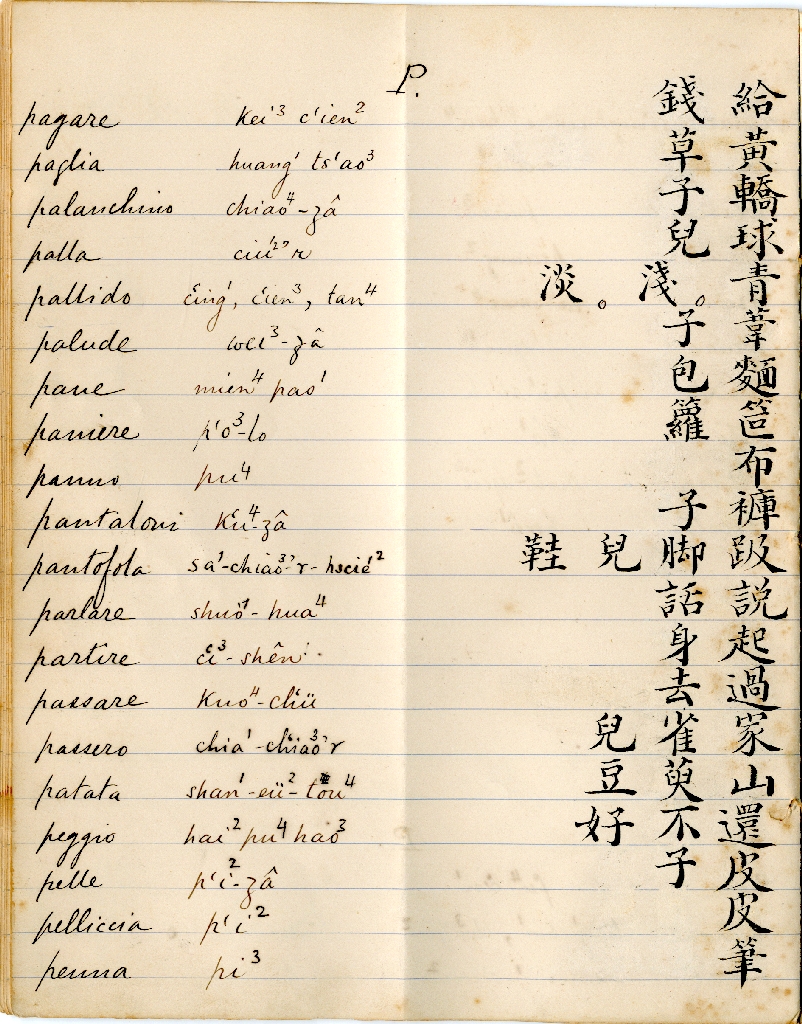 P.
pagare kei³ c'ien² 給錢
paglia huang¹ ts'ao³ 黃草
palanchino chiao⁴-zâ 轎子
palla ciü²'r 球兒
pallido c'ing¹, c'ien³, tan⁴ 青淺。淡。
palude wei³-zâ 葦子
pane mien⁴ pao¹ 麵包
paniere p'o³-lo 笸籮
panno pu⁴ 布
pantaloni k'u⁴-zâ 褲子
pantofola sa¹-chiao³'r-hscié² 趿脚兒鞋
parlare shuo¹-hua⁴ 說話
partire c'i³-shên¹ 起身
passare kuo⁴-ch'ü 過去
passero chia¹-ch'iao³'r 家雀兒
patata shan¹-eü²-tou⁴ 山萸豆
peggio hai² pu⁴ hao³ 還不好
pelle p'i²-zâ 皮子
pelliccia p'i² 皮
penna pi³ 筆